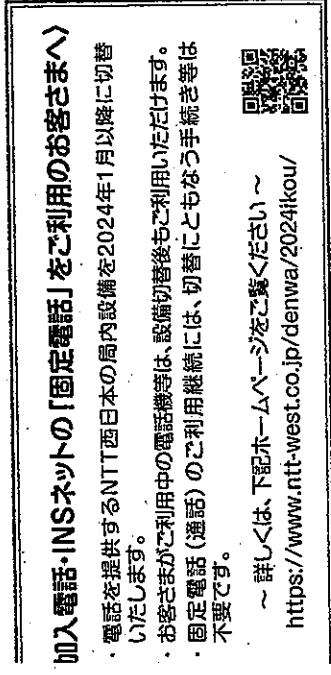 加入電話・INSネットの「固定電話」をご利用のお客さまへ〉
・電話を提供するNTT西日本の局内設備を2024年1月以降に切替
いたします。
・お客さまがご利用中の電話機等は、設備切替後もご利用いただけます。
・固定電話（通話）のご利用継続には、切替にともなう手続き等は
不要です。
～ 詳しくは、下記ホームページをご覧ください ～
https://www.ntt-west.co.jp/denwa/2024ikou/